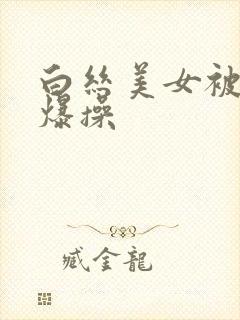 白丝美女被
爆操
臧金龍